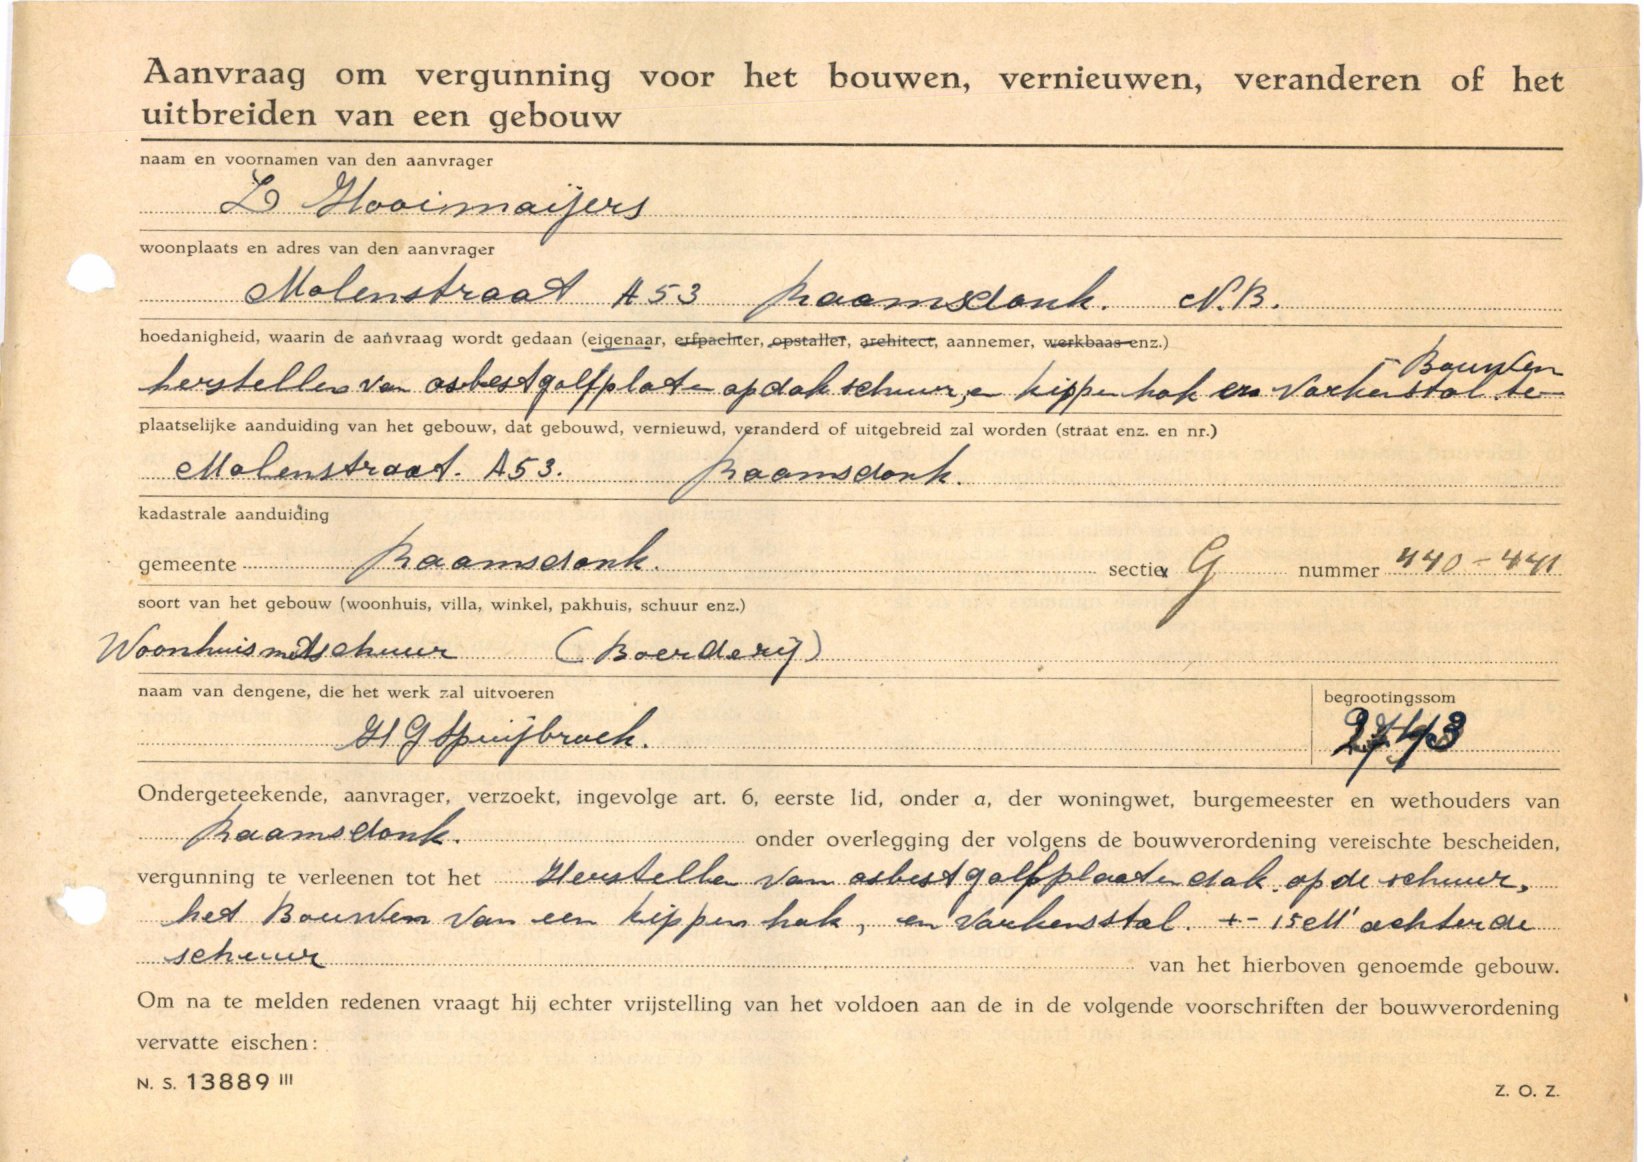 Aanvraag om vergunning voor het bouwen, vernieuwen, veranderen of het
uitbreiden van een gebouw
naam en voornamen van den aanvrager
L Hooimaijers
woonplaats en adres van den aanvrager
Molenstraat A53 Raamsdonk. N.B.
hoedanigheid, waarin de aanvraag wordt gedaan (eigenaar, erfpachter, opstaller, architect, aannemer, werkbaas enz.)
Bouwen
herstellen van asbestgolfplaten op dak schuur, en kippenhok en Varkenstal te
plaatselijke aanduiding van het gebouw, dat gebouwd, vernieuwd, veranderd of uitgebreid zal worden (straat enz. en nr.)
Molenstraat. A53. Raamsdonk.
kadastrale aanduiding
gemeente Raamsdonk. sectie G nummer 440-441
soort van het gebouw (woonhuis, villa, winkel, pakhuis, schuur enz.)
Woonhuis met schuur (Boerderij)
naam van dengene, die het werk zal uitvoeren
begrootingssom
H G Spuijbroek.
Ondergeteekende, aanvrager, verzoekt, ingevolge art. 6, eerste lid, onder a, der woningwet, burgemeester en wethouders van
Raamsdonk. onder overlegging der volgens de bouwverordening vereischte bescheiden,
vergunning te verleenen tot het Herstellen van asbestgolfplaaten dak op de schuur,
het Bouwen van een kippenhok, en Varkensstal. +- 15 M' achter de
schuur van het hierboven genoemde gebouw.
Om na te melden redenen vraagt hij echter vrijstelling van het voldoen aan de in de volgende voorschriften der bouwverordening
vervatte eischen:
N. S. 13889 III
Z. O. Z.